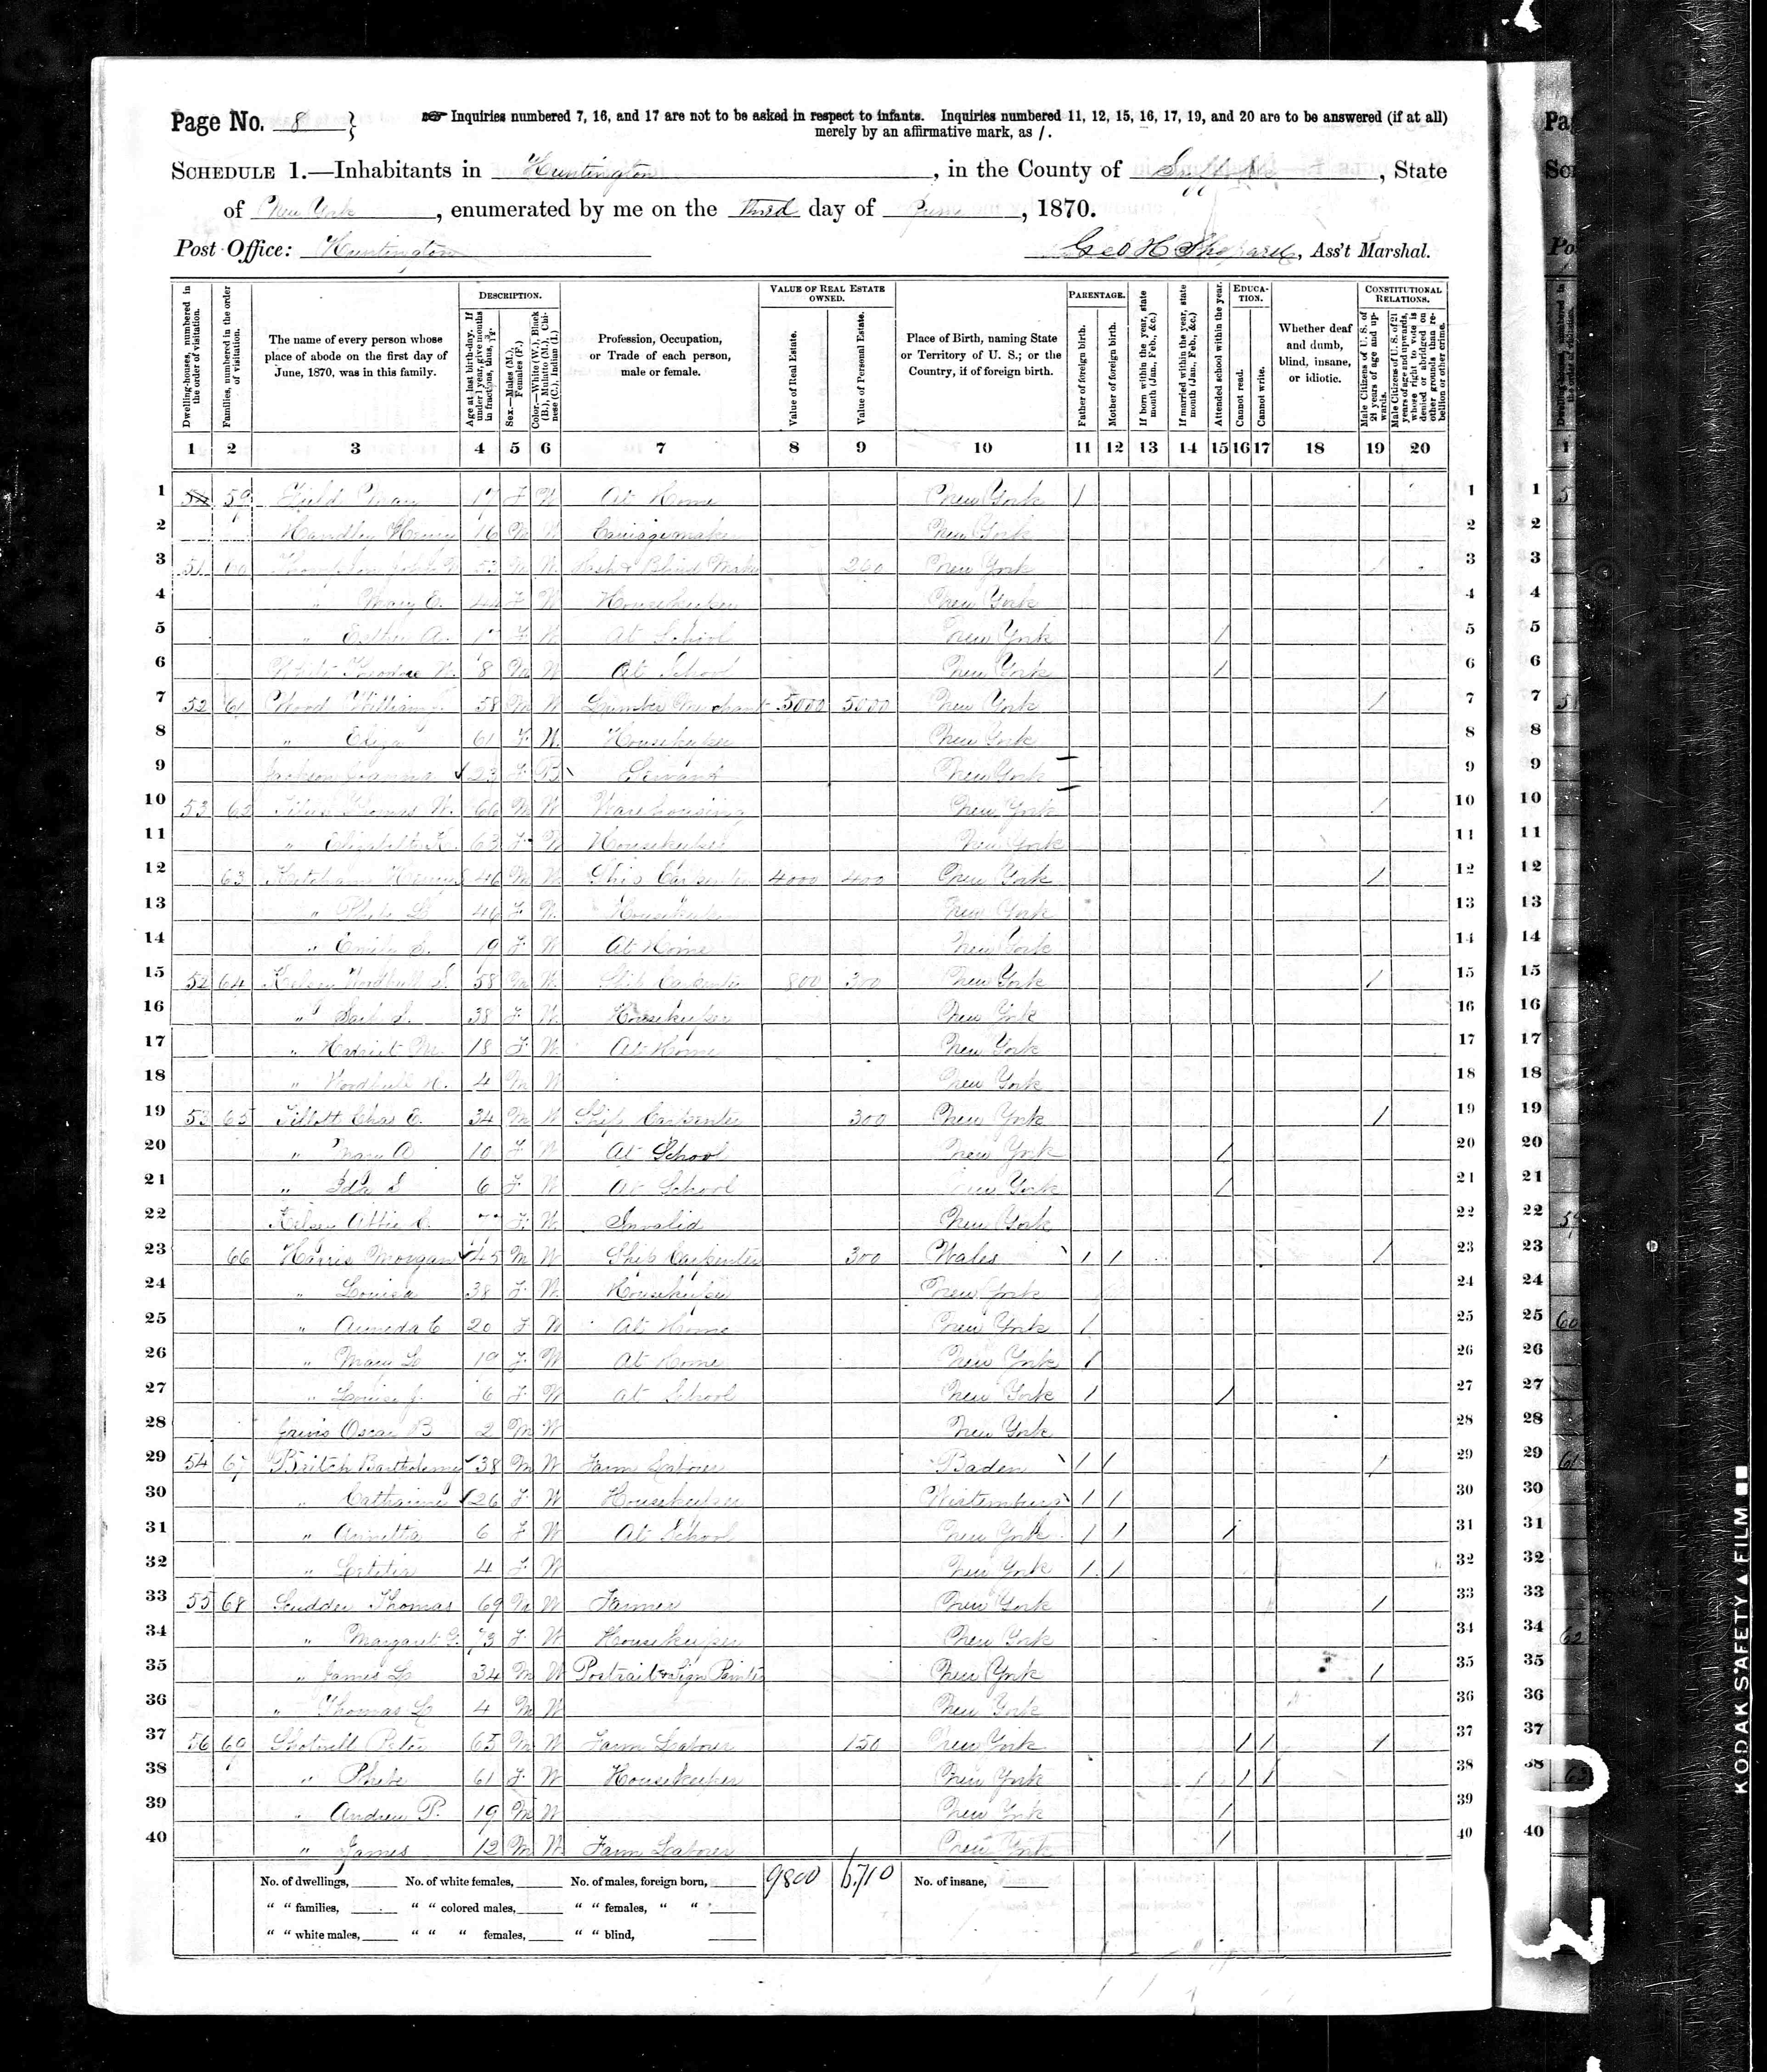 Page No. 8 }
Inquiries numbered 7, 16, and 17 are not to be asked in respect to infants. Inquiries numbered 11, 12, 15, 16, 17, 19, and 20 are to be answered (if at all)
merely by an affirmative mark, as /.
SCHEDULE 1.—Inhabitants in Huntington, in the County of Suffolk, State
of New York, enumerated by me on the third day of June, 1870.
Post Office: Huntington
Geo H Shepard, Ass't Marshal.
Dwelling-houses, numbered in the order of visitation.
Families, numbered in the order of visitation.
The name of every person whose place of abode on the first day of June, 1870, was in this family.
DESCRIPTION.
Age at last birth-day. If under 1 year, give months in fractions, thus, 3/12.
Sex.—Males (M.), Females (F.)
Color.—White (W.), Black (B.), Mulatto (M.), Chinese (C.), Indian (I.)
Profession, Occupation, or Trade of each person, male or female.
VALUE OF REAL ESTATE OWNED.
Value of Real Estate.
Value of Personal Estate.
Place of Birth, naming State or Territory of U. S.; or the Country, if of foreign birth.
PARENTAGE.
Father of foreign birth.
Mother of foreign birth.
If born within the year, state month (Jan., Feb., &c.)
If married within the year, state month (Jan., Feb., &c.)
Attended school within the year.
EDUCATION.
Cannot read.
Cannot write.
Whether deaf and dumb, blind, insane, or idiotic.
CONSTITUTIONAL RELATIONS.
Male Citizens of U. S. of 21 years of age and upwards.
Male Citizens of U. S. of 21 years of age and upwards, whose right to vote is denied or abridged on other grounds than rebellion or other crime.
1 2 3 4 5 6 7 8 9 10 11 12 13 14 15 16 17 18 19 20
1 59 Field Mary 17 F W At Home New York / 1
2 Handley Henry 16 M W Carriagemaker New York 2
3 51 60 Thompson 53 M W Sash & Blind Maker 260 New York / 3
4 " Mary E. 44 F W Housekeeper New York 4
5 " Esther A. F W At School New York / 5
6 Theodore W. 8 M W At School New York / 6
7 52 61 Wood William 58 M W Lumber Merchant 5000 5000 New York / 7
8 " Eliza 61 F W. Housekeeper New York 8
9 Jackson Joanna 23 F B Servant New York 9
10 53 62 Titus Thomas W. 66 M W Warehousing New York / 10
11 " Elizabeth K. 63 F W Housekeeper New York 11
12 63 Ketcham Henry S 46 M W Ship Carpenter 4000 400 New York / 12
13 " Phebe L 46 F W. Housekeeper New York 13
14 " Emily E. 19 F W At Home New York 14
15 52 64 Kelsey Woodhull S. 58 M W. Ship Carpenter 800 300 New York / 15
16 " S. 38 F W. Housekeeper New York 16
17 " Harriet M. 18 F W At Home New York 17
18 " Woodhull H. 4 M W New York 18
19 53 65 Tillott Chas E. 34 M W Ship Carpenter 300 New York / 19
20 " Mary A 10 F W At School New York / 20
21 " Ida S 6 F W At School New York / 21
22 Kelsey Attie C. F W. Invalid New York 22
23 66 Harris Morgan 45 M W Ship Carpenter 300 Wales / / / 23
24 " Louisa 38 F W. Housekeeper New York 24
25 " Almeda C 20 F W At Home New York / 25
26 " Mary L 19 F W At Home New York / 26
27 " Louise J. 6 F W At School New York / / 27
28 Jarvis Oscar B 2 M W New York 28
29 54 67 Britch Bartholemew 38 M W Farm Laborer Baden / / / 29
30 " Catharine 26 F W Housekeeper Wirtemburg / / 30
31 " Annetta 6 F W At School New York / / / 31
32 " Letitia 4 F W New York / / 32
33 55 68 Scudder Thomas 69 M W Farmer New York / 33
34 " Margaret G. 73 F W Housekeeper New York 34
35 " James L 34 M W Portrait & Sign Painter New York / 35
36 " Thomas L 4 M W New York 36
37 56 69 Shotwell Peter 65 M W Farm Laborer 150 New York / / / 37
38 " Phebe 61 F W Housekeeper New York / / / 38
39 " Andrew P. 19 M W New York / 39
40 " James 12 M W Farm Laborer New York / 40
No. of dwellings, No. of white females, No. of males, foreign born, 9800 6710 No. of insane,
" " families, " " colored males, " " females, " "
" " white males, " " " females, " " blind,
KODAK SAFETY ▲ FILM